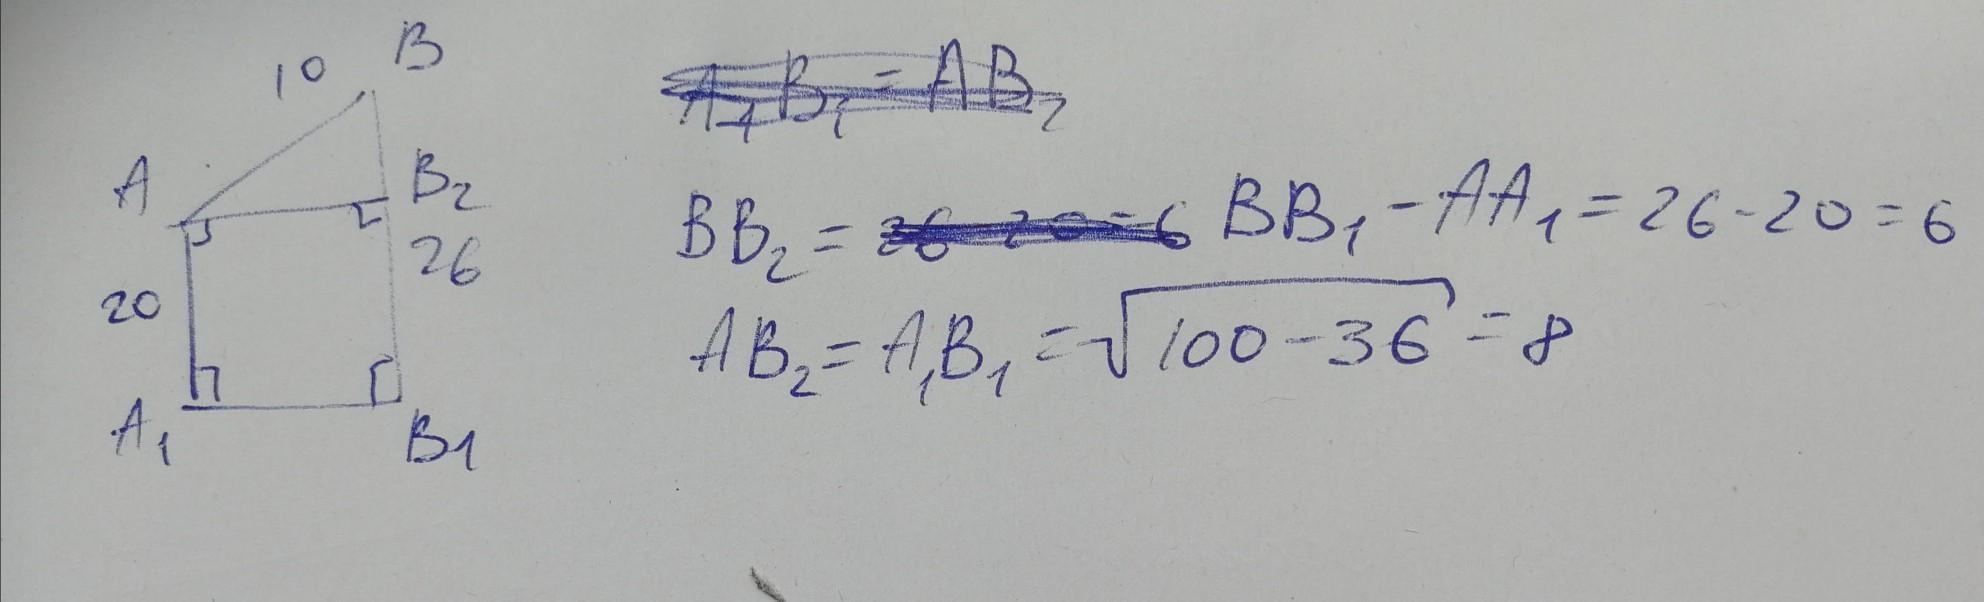 10 B
A B₂
20 26
A₁ B1
A₁B₁ = AB₂
BB₂ = 26-20=6 BB₁ - AA₁ = 26-20 = 6
AB₂ = A₁B₁ = √100-36 = 8